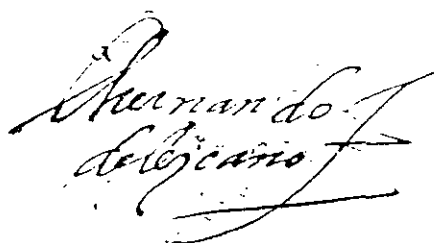 Dhernando
delezcano